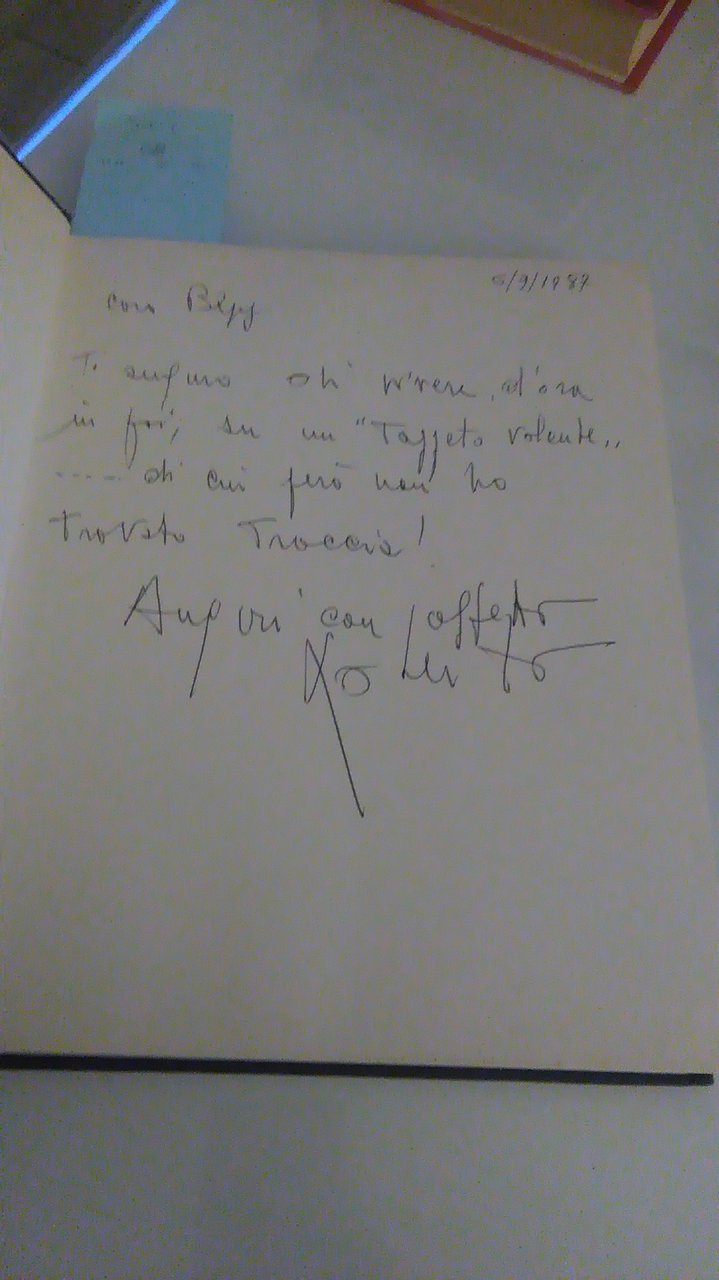 6/9/1987
caro Bepy
Ti auguro di vivere, d'ora
in poi, su un "Tappeto volante"
----- di cui però non ho
trovato Traccia!
Auguri con affetto
Roberto